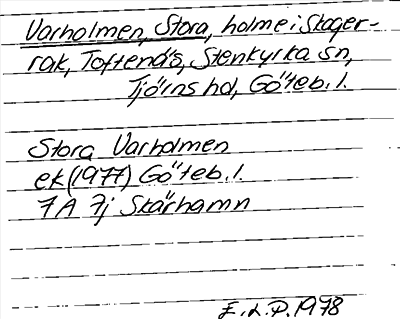 Varholmen, Stora, holme i Skager-
rak, Toftenäs, Stenkyrka sn,
Tjörns hd, Göteb. l.
Stora Varholmen
ek (1977) Göteb. l.
7A 7j Skärhamn
E.L.P. 1978